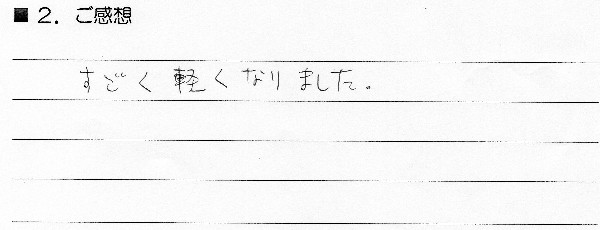 ■ 2. ご感想
すごく軽くなりました。